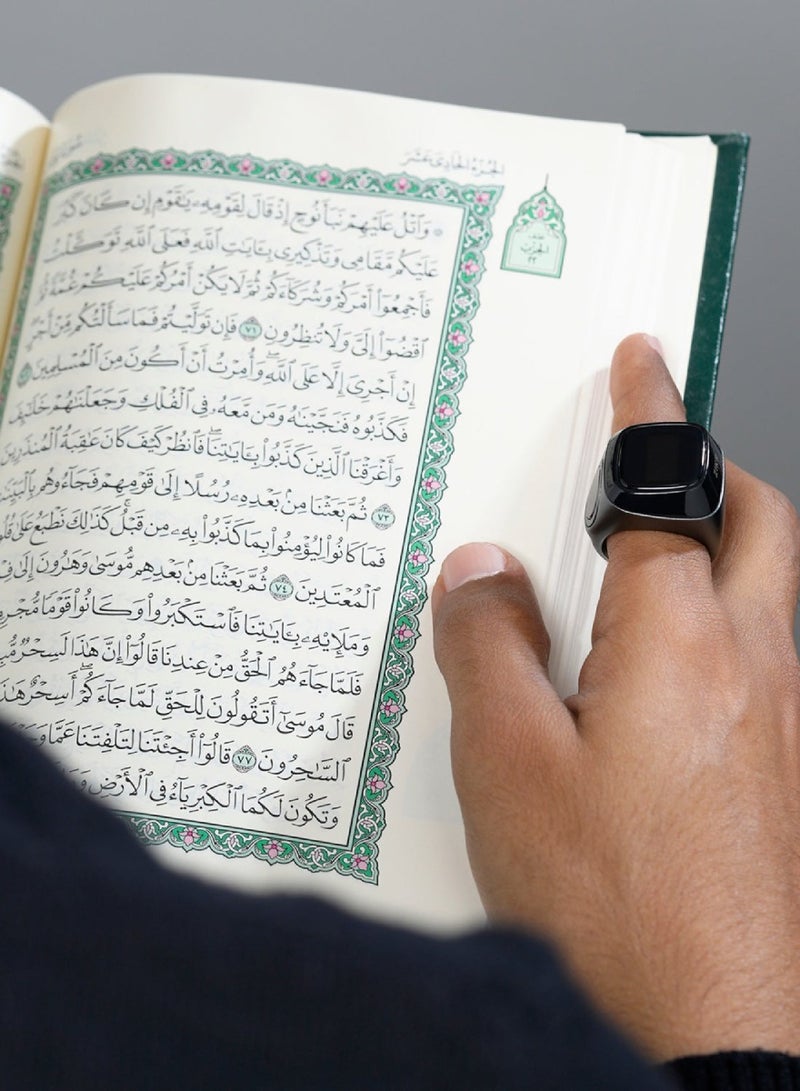 الجزء الحادي عشر
نصف
الحزب
٢٢
۞ وَٱتْلُ عَلَيْهِمْ نَبَأَ نُوحٍ إِذْ قَالَ لِقَوْمِهِۦ يَٰقَوْمِ إِن كَانَ كَبُرَ
عَلَيْكُم مَّقَامِى وَتَذْكِيرِى بِـَٔايَٰتِ ٱللَّهِ فَعَلَى ٱللَّهِ تَوَكَّلْتُ
فَأَجْمِعُوٓا۟ أَمْرَكُمْ وَشُرَكَآءَكُمْ ثُمَّ لَا يَكُنْ أَمْرُكُمْ عَلَيْكُمْ غُمَّةً ثُمَّ
ٱقْضُوٓا۟ إِلَىَّ وَلَا تُنظِرُونِ ٧١ فَإِن تَوَلَّيْتُمْ فَمَا سَأَلْتُكُم مِّنْ أَجْرٍ
إِنْ أَجْرِىَ إِلَّا عَلَى ٱللَّهِ وَأُمِرْتُ أَنْ أَكُونَ مِنَ ٱلْمُسْلِمِينَ
فَكَذَّبُوهُ فَنَجَّيْنَٰهُ وَمَن مَّعَهُۥ فِى ٱلْفُلْكِ وَجَعَلْنَٰهُمْ خَلَٰٓئِفَ
وَأَغْرَقْنَا ٱلَّذِينَ كَذَّبُوا۟ بِـَٔايَٰتِنَا فَٱنظُرْ كَيْفَ كَانَ عَٰقِبَةُ ٱلْمُنذَرِينَ
٧٣ ثُمَّ بَعَثْنَا مِنۢ بَعْدِهِۦ رُسُلًا إِلَىٰ قَوْمِهِمْ فَجَآءُوهُم
فَمَا كَانُوا۟ لِيُؤْمِنُوا۟ بِمَا كَذَّبُوا۟ بِهِۦ مِن قَبْلُ كَذَٰلِكَ نَطْبَعُ عَلَىٰ
ٱلْمُعْتَدِينَ ٧٤ ثُمَّ بَعَثْنَا مِنۢ بَعْدِهِم مُّوسَىٰ وَهَٰرُونَ إِلَىٰ
وَمَلَإِيْهِۦ بِـَٔايَٰتِنَا فَٱسْتَكْبَرُوا۟ وَكَانُوا۟ قَوْمًا
فَلَمَّا جَآءَهُمُ ٱلْحَقُّ مِنْ عِندِنَا قَالُوٓا۟ إِنَّ هَٰذَا لَسِحْرٌ
قَالَ مُوسَىٰٓ أَتَقُولُونَ لِلْحَقِّ لَمَّا جَآءَكُمْ أَسِحْرٌ هَٰذَا
ٱلسَّٰحِرُونَ ٧٧ قَالُوٓا۟ أَجِئْتَنَا لِتَلْفِتَنَا عَمَّا
وَتَكُونَ لَكُمَا ٱلْكِبْرِيَآءُ فِى ٱلْأَرْضِ